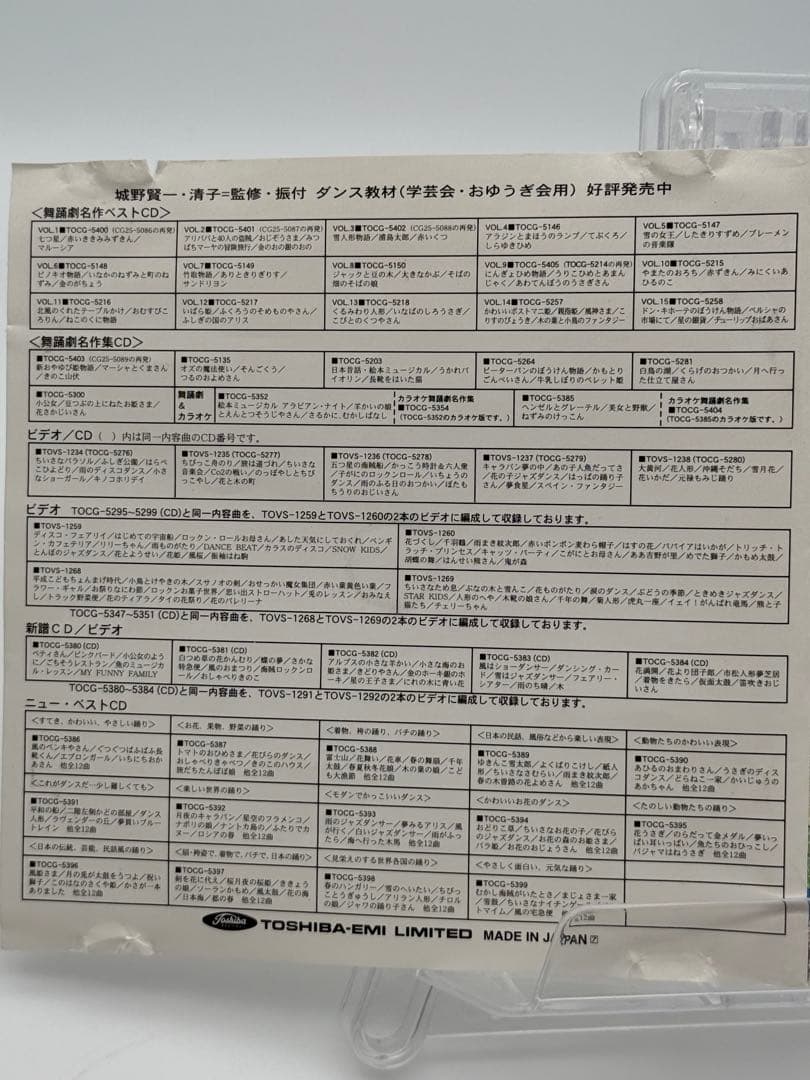 城野賢一・清子=監修・振付 ダンス教材(学芸会・おゆうぎ会用) 好評発売中
<舞踊劇名作ベストCD>
VOL.1■TOCG-5400 (CG25-5086の再発)
七つ星/赤いききみみずきん/
マルーシア
VOL.2■TOCG-5401 (CG25-5087の再発)
アリババと40人の盗賊/おじぞうさま/みつ
ばちマーヤの冒険旅行/金のおの銀のおの
VOL.3■TOCG-5402 (CG25-5088の再発)
雪人形物語/浦島太郎/赤いくつ
VOL.4■TOCG-5146
アラジンとまほうのランプ/てぶくろ/
しらゆきひめ
VOL.5■TOCG-5147
雪の女王/したきりすずめ/ブレーメン
の音楽隊
VOL.6■TOCG-5148
ピノキオ物語/いなかのねずみと町のね
ずみ/金のがちょう
VOL.7■TOCG-5149
竹取物語/ありときりぎりす/
サンドリヨン
VOL.8■TOCG-5150
ジャックと豆の木/大きなかぶ/そばの
畑のそばの娘
VOL.9■TOCG-5405 (TOCG-5214の再発)
にんぎょひめ物語/うりこひめとあまん
じゃく/あわてんぼうのうさぎさん
VOL.10■TOCG-5215
やまたのおろち/赤ずきん/みにくいあ
ひるのこ
VOL.11■TOCG-5216
北風のくれたテーブルかけ/おむすびこ
ろりん/ねこのくに物語
VOL.12■TOCG-5217
いばら姫/ふくろうのそめものやさん/
ふしぎの国のアリス
VOL.13■TOCG-5218
くるみわり人形/いなばのしろうさぎ/
こびとのくつやさん
VOL.14■TOCG-5257
かわいいポストマニ姫/親指姫/風神さま/こ
りすのぴょうき/木の葉と小鳥のファンタジー
VOL.15■TOCG-5258
ドン・キホーテのぼうけん物語/ペルシャの
市場にて/星の銀貨/チューリップおばあさん
<舞踊劇名作集CD>
■TOCG-5403 (CG25-5089の再発)
新おやゆび姫物語/マーシャとくまさん
/きのこ山伏
■TOCG-5135
オズの魔法使い/そんごくう/
つるのおよめさん
■TOCG-5203
日本昔話・絵本ミュージカル/うかれバ
イオリン/長靴をはいた猫
■TOCG-5264
ピーターパンのぼうけん物語/かもとり
ごんべいさん/牛乳しぼりのペレット姫
■TOCG-5281
白鳥の湖/くらげのおつかい/月へ行っ
た仕立て屋さん
■TOCG-5300
小公女/豆つぶの上にねたお姫さま/
花さかじいさん
舞踊
&
カラオケ
■TOCG-5352
絵本ミュージカル アラビアン・ナイト/羊かいの娘
とえんとつそうじやさん/さるかに、むかしばなし
カラオケ舞踊劇名作集
■TOCG-5354
(TOCG-5352のカラオケ版です。)
■TOCG-5385
ヘンゼルとグレーテル/美女と野獣/
ねずみのけっこん
カラオケ舞踊劇名作集
■TOCG-5404
(TOCG-5385のカラオケ版です。)
ビデオ/CD ( )内は同一内容曲のCD番号です。
■TOVS-1234 (TOCG-5276)
ちいさなパラソル/ふしぎ公園/はらぺ
こひよどり/雨のディスコダンス/小さ
なショーガール/キノコホリデイ
■TOVS-1235 (TOCG-5277)
ちびっこ舟のり/旅は道づれ/ちいさな
音楽会/Co2の戦い/のっぽやしとちび
っこやし/花と木の町
■TOVS-1236 (TOCG-5278)
五つ星の海賊船/かっこう時計&六人衆
/子がにのロックンロール/いちょうの
ダンス/雨のふる日のおつかい/ぼたも
ちうりのおじいさん
■TOVS-1237 (TOCG-5279)
キャラバン夢の中/あの子人魚だってさ
/花の子ジャズダンス/はっぱの踊り子
さん/夢食星/スペイン・ファンタジー
■TOVS-1238 (TOCG-5280)
大黄河/花人形/沖縄そだち/雪月花/
花いかだ/元禄もみじ踊り
ビデオ TOCG-5295~5299 (CD)と同一内容曲を、TOVS-1259とTOVS-1260の2本のビデオに編成して収録しております。
■TOVS-1259
ディスコ・フェアリイ/はじめての宇宙船/ロックン・ロールお母さん/あした天気にしておくれ/ペンギ
ン・カフェテリア/リリーちゃん/雨ものがたり/DANCE BEAT/カラスのディスコ/SNOW KIDS/
とんぼのジャズダンス/花とようせい/花姫/風桜/振袖はね駒
■TOVS-1260
花づくし/千羽鶴/雨まき紋次郎/赤いポンポン麦わら帽子/はすの花/パパイアはいかが/トリッチ・ト
ラッチ・プリンセス/キャッツ・パーティ/こがにとお母さん/ああ吉野が里/めでた獅子/かもめ太鼓/
胡蝶の舞/はんせい熊さん/鬼が森
■TOVS-1268
平成こどもちょんまげ時代/小鳥とけやきの木/スサノオの剣/おせっかい魔女集団/赤い葉黄色い葉/フ
ラワー・ギャル/お祭りなにわ節/ロックンお菓子世界/思い出ストローハット/兎のレッスン/おみなえ
し/トラック野菜便/花のティアラ/タイの花祭り/花のバレリーナ
■TOVS-1269
ちいさなため息/ぶなの木と雪んこ/花ものがたり/涙のダンス/ぶどうの季節/ときめきジャズダンス/
STAR KIDS/人形のへや/木靴の娘さん/千年の舞/菊人形/虎丸一座/イェイ!がんばれ竜馬/熊と子
猫たち/チェリーちゃん
TOCG-5347~5351 (CD)と同一内容曲を、TOVS-1268とTOVS-1269の2本のビデオに編成して収録しております。
新譜CD/ビデオ
■TOCG-5380 (CD)
ベティさん/ピンクバード/小公女のよう
に/ごちそうレストラン/魚のミュージカ
ル・レッスン/MY FUNNY FAMILY
■TOCG-5381 (CD)
白つめ草の花かんむり/蝶の夢/さかな
特急便/風のおまつり/海賊ロックンロ
ール/おしゃべりきのこ
■TOCG-5382 (CD)
アルプスの小さな羊かい/小さな海のお
姫さま/きどりやさん/金のホーキ銀のホ
ーキ/星の王子さま/にれの木に青い花
■TOCG-5383 (CD)
風はショーダンサー/ダンシング・カー
ド/雪はジャズダンサー/フェアリー・
シアター/雨のち晴/木
■TOCG-5384 (CD)
花満開/花より団子郎/市松人形夢芝居
/着物をきたら/仮面太鼓/笛吹きおじ
いさん
TOCG-5380~5384 (CD)と同一内容曲を、TOVS-1291とTOVS-1292の2本のビデオに編成して収録しております。
ニュー・ベストCD
<すてき、かわいい、やさしい踊り>
<お花、果物、野菜の踊り>
<着物、袴の踊り、バチの踊り>
<日本の民話、風俗などから楽しい表現>
<動物たちのかわいい表現>
■TOCG-5386
風のペンキやさん/くつくつばふばふ長
靴くん/エプロンガール/いちにちおか
あさん 他全12曲
■TOCG-5387
トマトのおひめさま/花びらのダンス/
おしゃべりきゃべつ/きのこのハウス/
旅だちたんぽぽ娘 他全12曲
■TOCG-5388
富士山/花舞い/花車/春の舞扇/千年
太鼓/春夏秋冬花娘/木の葉の娘/こど
も大漁節 他全12曲
■TOCG-5389
ゆきんこ雪太郎/よくばりこけし/紙人
形/ちいさなさむらい/雨まき紋次郎/
春の木昔娘の花よめさん 他全12曲
■TOCG-5390
あひるのおまわりさん/うさぎのディス
コダンス/どらねこ一家/かいじゅうの
あかちゃん 他全12曲
<これがダンスだ…少し難しくても>
<楽しい世界の踊り>
<モダンでかっこいいダンス>
<かわいいお花のダンス>
<たのしい動物たちの踊り>
■TOCG-5391
平和の船/二階左側かどの部屋/ダンス
人形/ラヴェンダーの丘/夢買いブルー
トレイン 他全12曲
■TOCG-5392
月夜のキャラバン/星空のフラメンコ/
ナポリの娘/ナントカ島の/ふたりでカ
ヌー/ロシアの春 他全12曲
■TOCG-5393
雨のジャズダンサー/夢みるアリス/風
が行く/白いジャズダンサー/雨がふっ
たら/海へ行った木馬 他全12曲
■TOCG-5394
おどりこ草/ちいさなお花の子/花びら
のジャズダンス/お花の森のお姫さま/
バラ姫/花のおじょうさん 他全12曲
■TOCG-5395
花うさぎ/のらだって金メダル/夢いっ
ぱい耳いっぱい/魚たちのおひっこし/
パジャマはねうさぎ 他全12曲
<日本の伝統、芸能、民話風の踊り>
<扇・袴姿で、着物で、バチで、日本の踊り>
<見栄えのする世界各国の踊り>
<やさしく面白い、元気な踊り>
■TOCG-5396
風姫さま/月の兎が太鼓をうつよ/祝い
獅子/このはなのさくや姫/かさが一本
ありました 他全12曲
■TOCG-5397
剣を花に代え/桜月夜の桜姫/ききょう
の娘/ソーランかもめ/風太鼓/花の海
/日本海/都の春 他全12曲
■TOCG-5398
春のハンガリー/雪のへいたい/ちびっ
ことうぎゅうし/アリラン人形/チロル
の娘/ジャワの踊り子さん 他全12曲
■TOCG-5399
むかし海賊がいたとさ/まじょさま一家
/雪鼓/ちいさなナイチンゲール
トマイム/風の宅急便 全12曲
Toshiba
TOSHIBA-EMI LIMITED MADE IN JAPAN